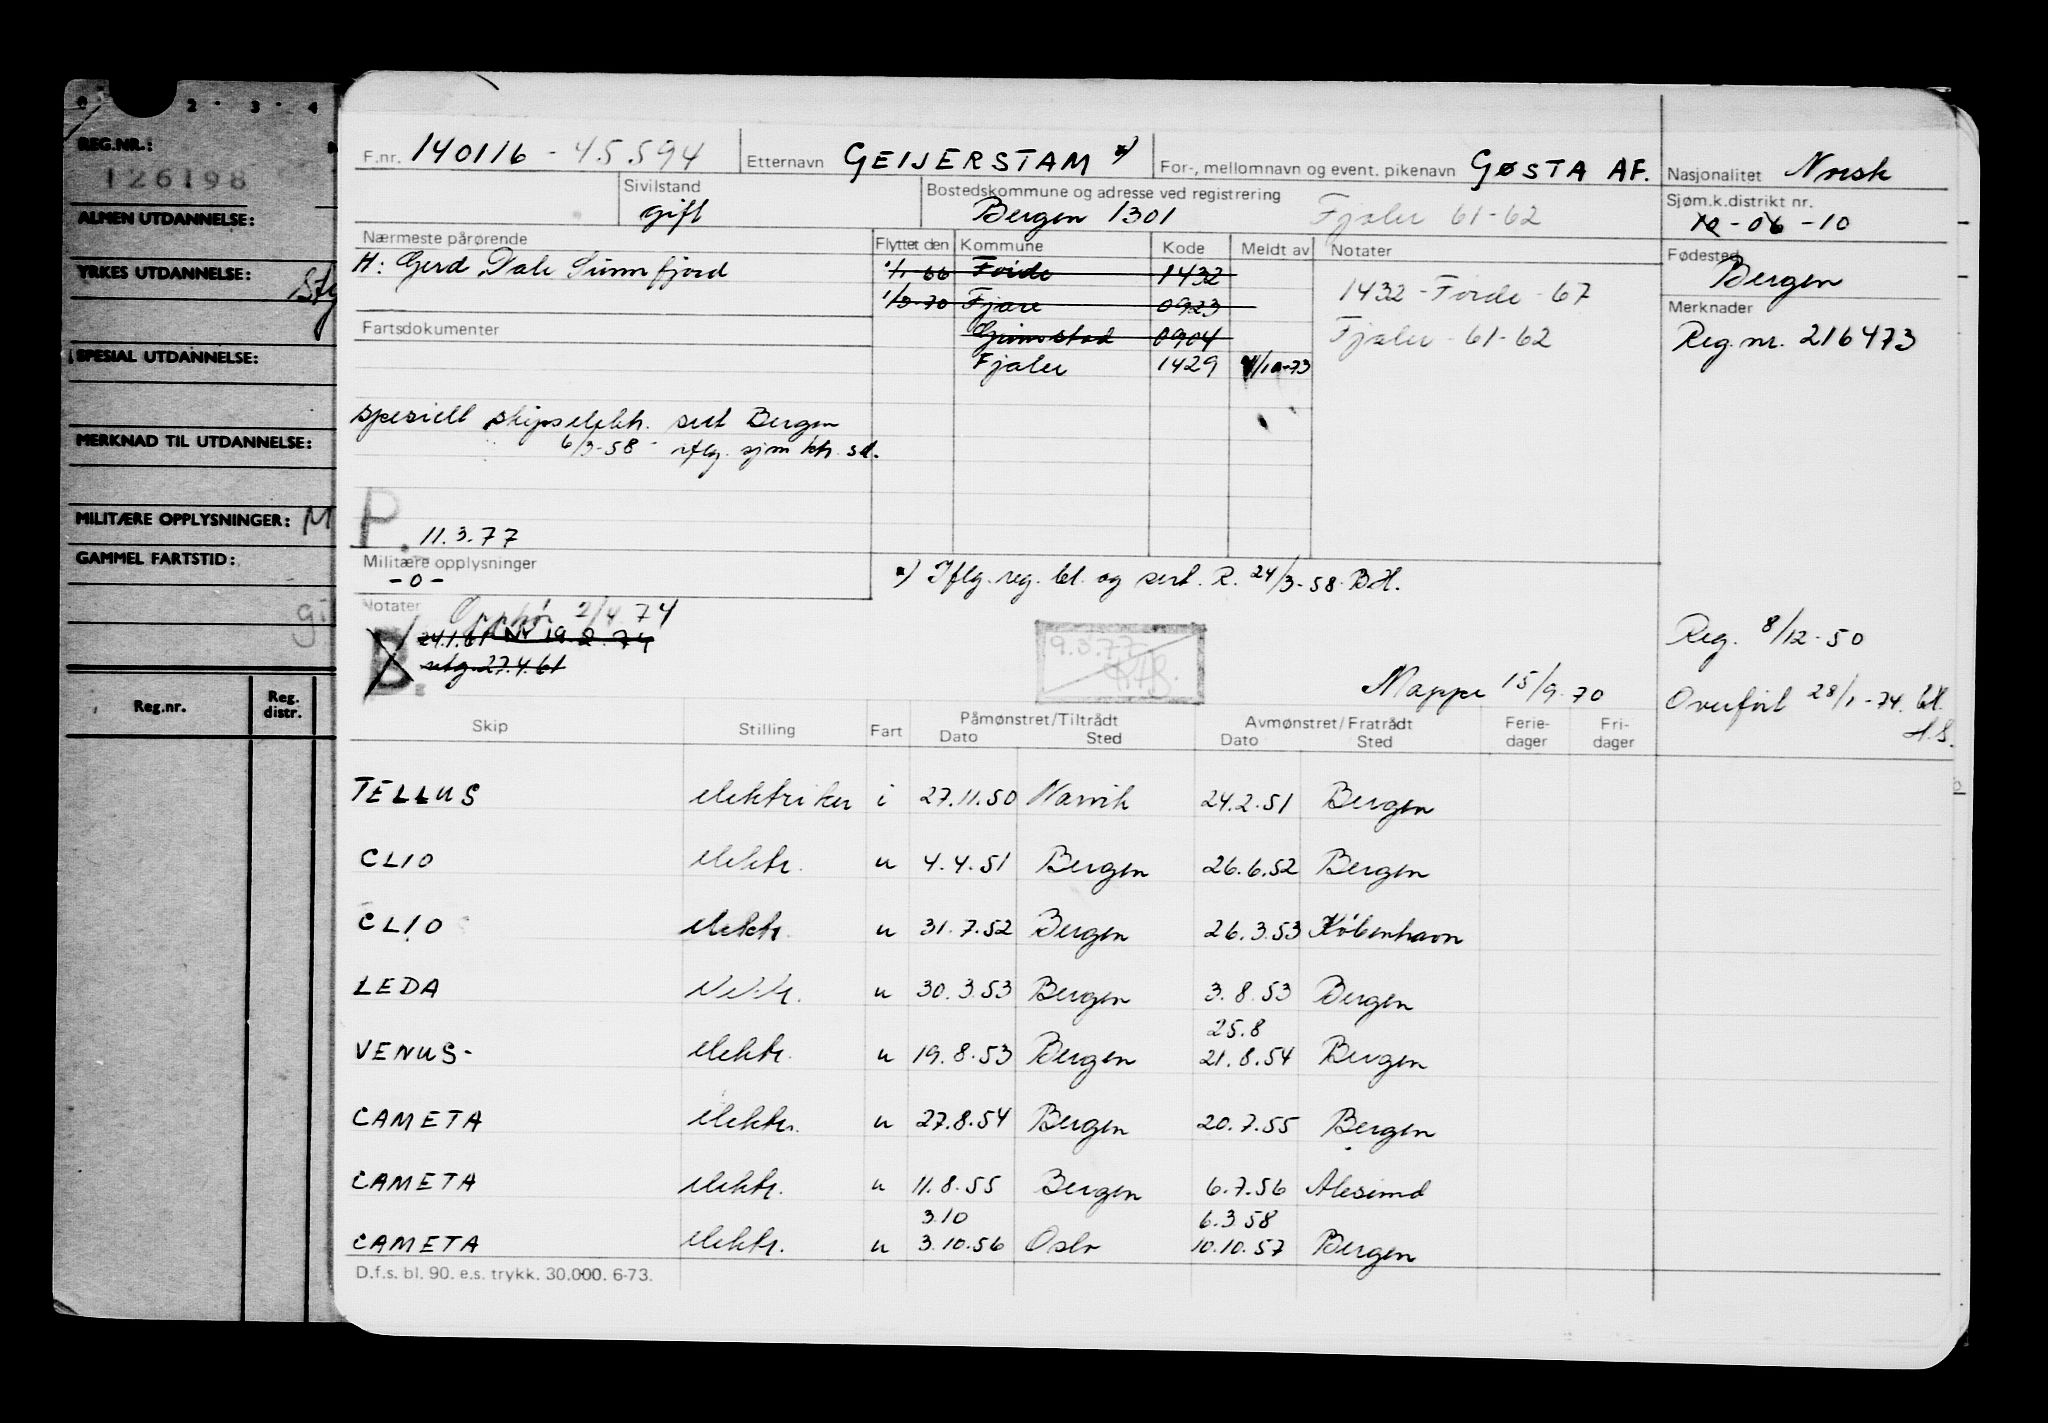 2 · 3 · 4
REG.NR.:
126198
ALMEN UTDANNELSE:
YRKES UTDANNELSE:
SPESIAL UTDANNELSE:
MERKNAD TIL UTDANNELSE:
MILITÆRE OPPLYSNINGER: M
GAMMEL FARTSTID:
Reg.nr. Reg. distr.
F.nr. 140116 - 45.594 Etternavn GEIJERSTAM *) For-, mellomnavn og event. pikenavn GØSTA AF. Nasjonalitet Norsk
Sivilstand gift Bostedskommune og adresse ved registrering Bergen 1301 Fjaler 61-62 Sjøm.k.distrikt nr. 10-06-10
Nærmeste pårørende Flyttet den Kommune Kode Meldt av Notater Fødested Bergen
H: Gerd Dale Sunnfjord 1/1-66 Førde 1432 1432 - Førde - 67
1/9-70 Fjære 0923 Merknader
Fartsdokumenter Grimstad 0904 Fjaler - 61-62 Reg. nr. 216473
Fjaler 1429 1/10-73
spesiell skipselektr. sert Bergen
6/3-58 iflg. sjm ktr. sd.
P. 11.3.77
Militære opplysninger
-0-
*) Iflg. reg. bl. og sert. R. 24/3-58 B.H.
Notater Opphør 2/4 74
B. 24.1.61 NV 19.2.74
utg. 27.4.61
9.3.77
Reg. 8/12-50
Mappe 15/9-70
Overført 28/1-74. bl.
A.S.
Skip Stilling Fart Påmønstret/Tiltrådt Dato Sted Avmønstret/Fratrådt Dato Sted Ferie-dager Fri-dager
TELLUS elektriker i 27.11.50 Narvik 24.2.51 Bergen
CLIO elektr. u 4.4.51 Bergen 26.6.52 Bergen
CLIO elektr. u 31.7.52 Bergen 26.3.53 København
LEDA elektr. u 30.3.53 Bergen 3.8.53 Bergen
25.8
VENUS- elektr. u 19.8.53 Bergen 21.8.54 Bergen
CAMETA elektr. u 27.8.54 Bergen 20.7.55 Bergen
CAMETA elektr. u 11.8.55 Bergen 6.7.56 Ålesund
3.10 6.3.58
CAMETA elektr. u 3.10.56 Oslo 10.10.57 Bergen
D.f.s. bl. 90. e.s. trykk. 30.000. 6-73.